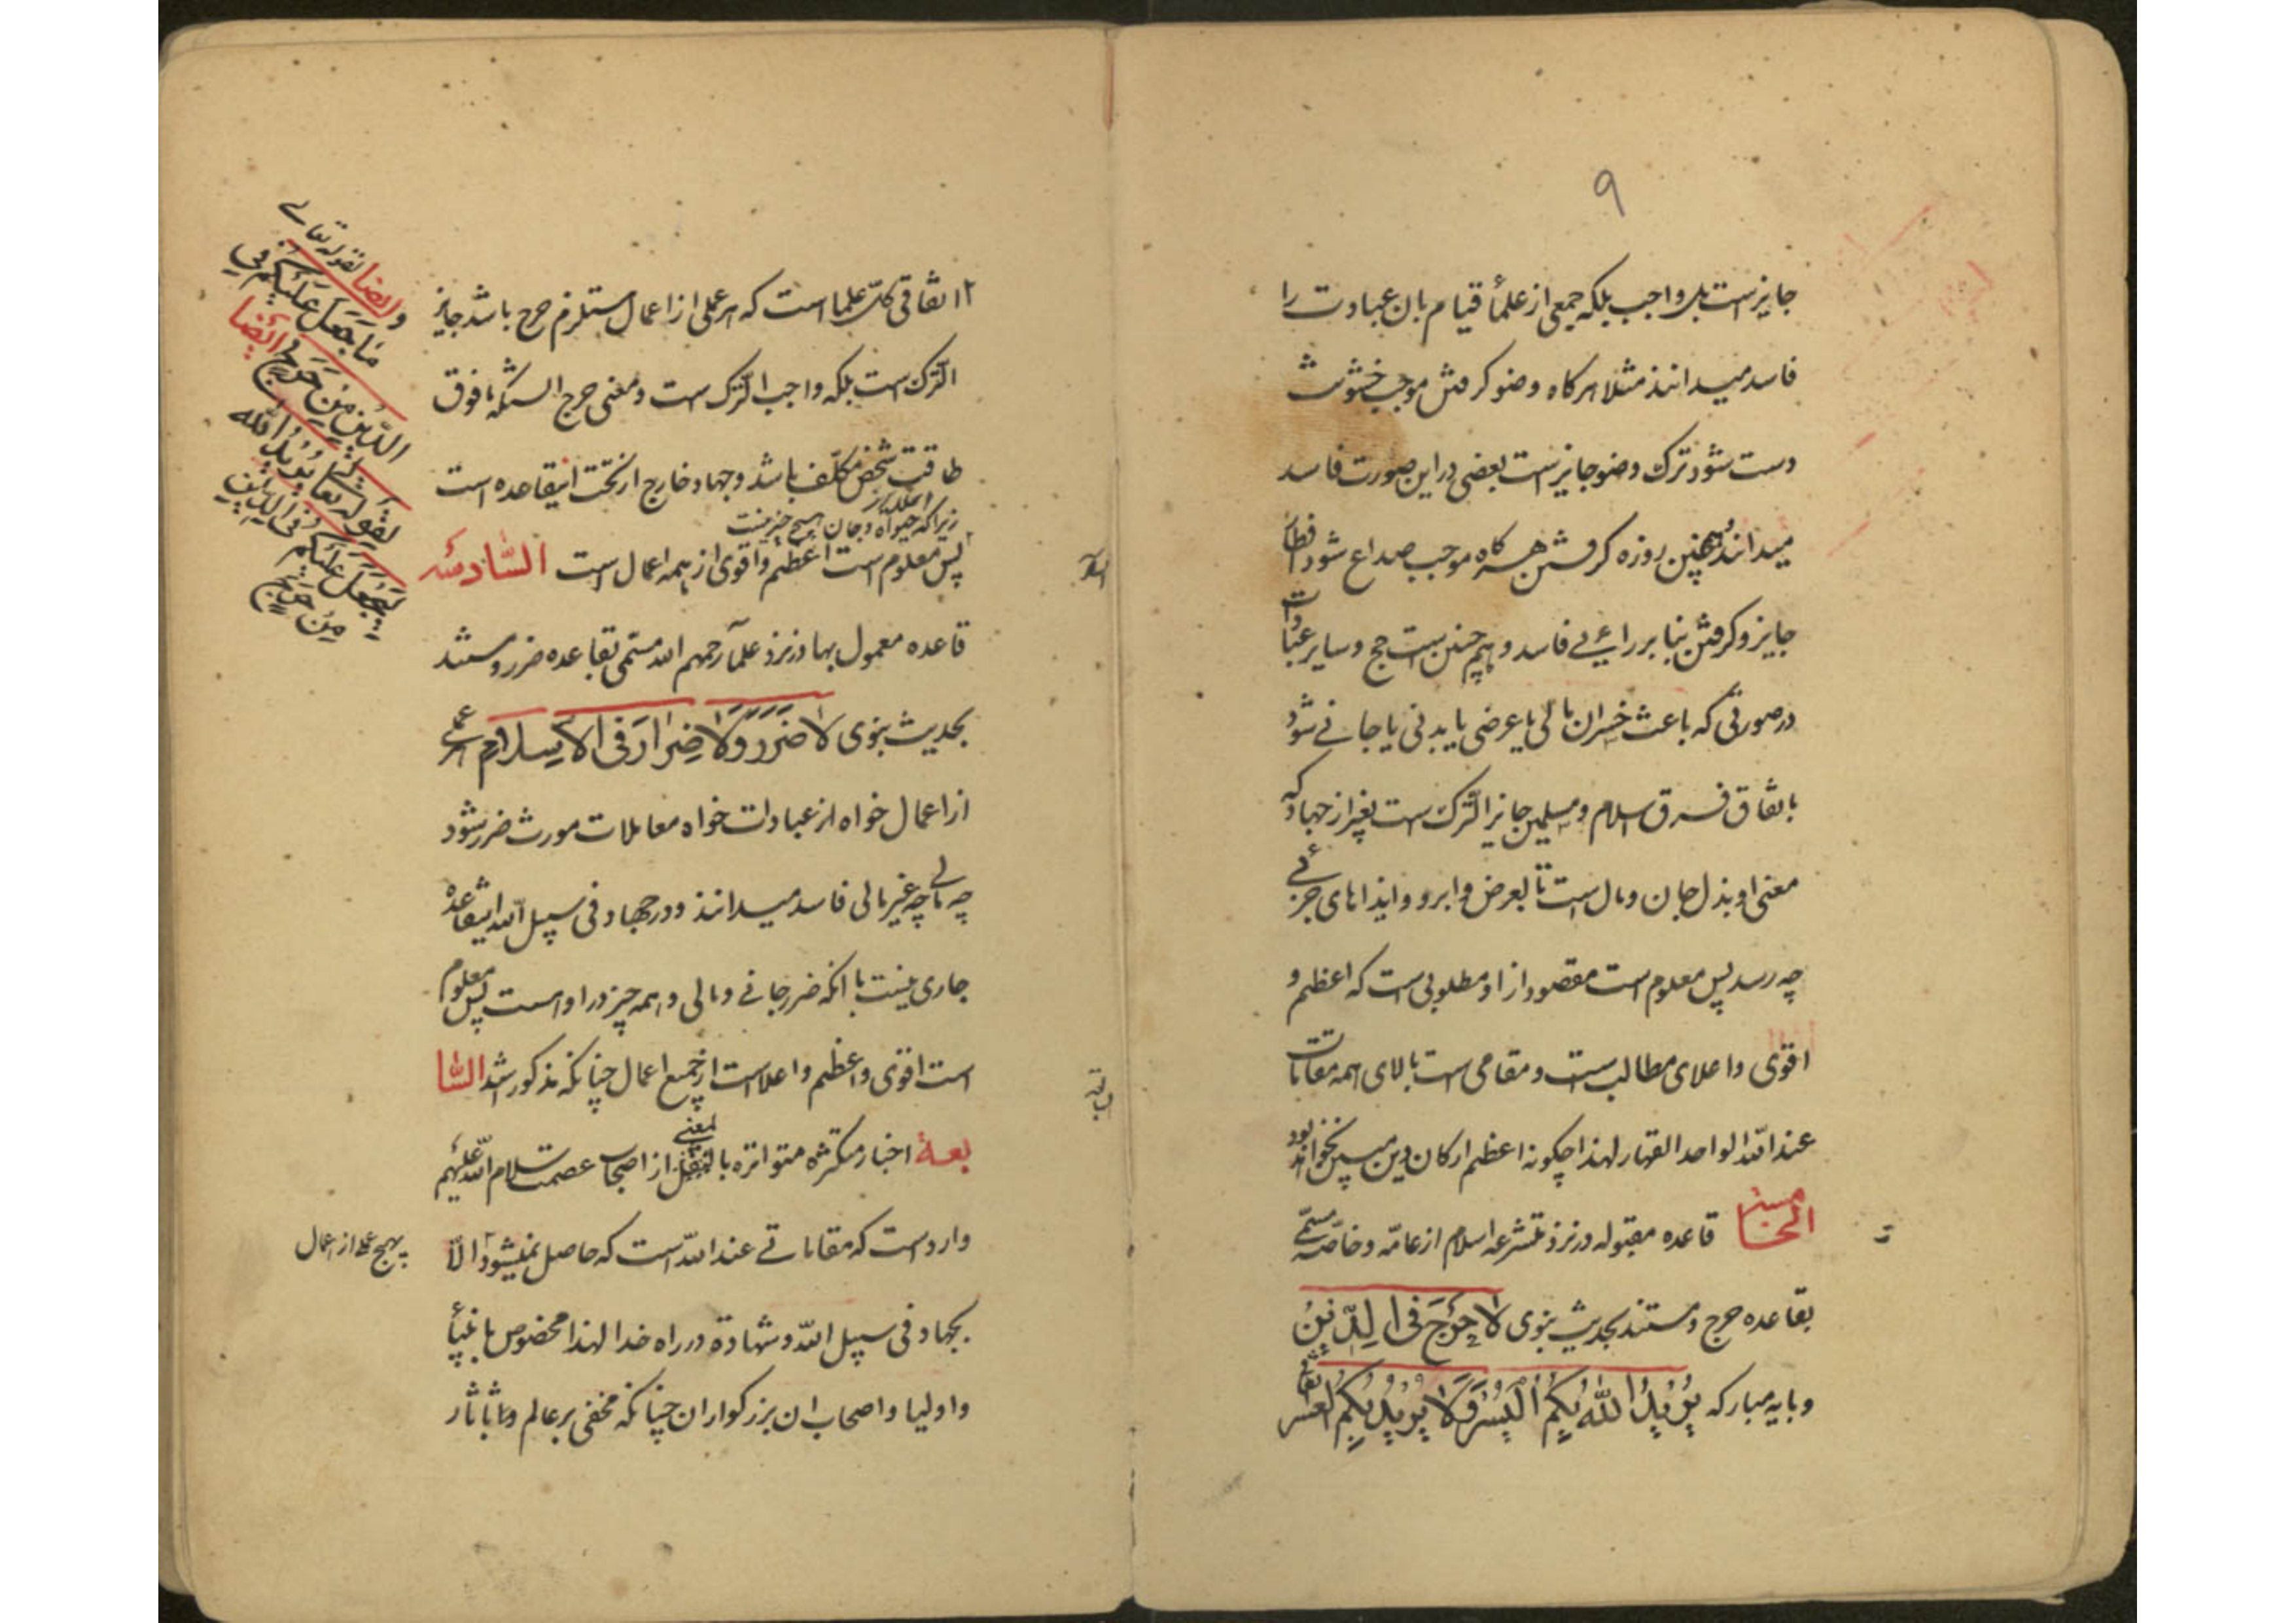 ۹
جایز است بل واجب بلکه جمعی از علمأ قیام بان عبادت را
فاسد میدانند مثلا هرکاه وضو کرفتن موجب خشونت
دست شود ترک وضو جایز است بعضی در این صورت فاسد
میدانند همچنین روزه کرفتن هرکاه موجب صداع شود افطار
جایز و کرفتن بنا بر رایی فاسد و همچنین است حج و سایر عبادات
در صورتی که باعث خسران مالی یا عرضی یا بدنی یا جانی شود
باتفاق فرق اسلام و مسلمین جایز الترک است بغیر از جهاد که
معنی او بذل جان و مال است تا بعرض و ابرو و ایذاهای جزئی
چه رسد پس معلوم است مقصود از او مطلوبی است که اعظم و
اقوی و اعلای مطالب است و مقامی است بالای همه مقامات
عند الله الواحد القهار لهذا چکونه اعظم ارکان دین مبین نخواهد بود
الخامسة قاعده مقبوله در نزد متشرعه اسلام از عامّه و خاصّه مسمّی
بقاعده حرج و مستند بحدیث نبوی لا حَرَجَ فی الدّینِ
و بایه مبارکه یُریدُ اللهُ بِکُمُ الیُسْرَ وَلا یُریدُ بِکُمُ العُسر
۱۲ اتفاقی کلّ علما است که هر عملی از اعمال مستلزم حرج باشد جایز
الترک است بلکه واجب الترک است و معنی حرج انستکه ما فوق
طاقت شخص مکلّف باشد و جهاد خارج از تحت اینقاعده است
زیرا که حیوة و جان هیچ چیز نیست
پس معلوم است اعظم و اقوی از همه اعمال است السّادسة
قاعده معمول بها در نزد علمآ رحمهم الله مسمّی بقاعده ضرر و مستند
بحدیث نبوی لا ضَرَرَ وَلا ضِرارَ فی الاسلام هر عملی
از اعمال خواه از عبادات خواه معاملات مورث ضرر شود
چه مالی چه غیر مالی فاسد میدانند و در جهاد فی سبیل الله اینقاعده
جاری نیست با انکه ضرر جانی و مالی و همه چیز در او است پس معلوم
است اقوی و اعظم و اعلا است از جمیع اعمال چنانکه مذکور شد السّا
بعة اخبار متکثره متواتره بالمعنی از اصحاب عصمت سلام الله علیهم
وارد است که مقاماتی عند الله است که حاصل نمیشود الّا
بجهاد فی سبیل الله و شهادة در راه خدا لهذا مخصوص بانبیأ
و اولیا و اصحاب ان بزرکواران چنانکه مخفی بر عالم و باثار
وایضا لقوله تعالی
ما جَعَلَ عَلَیْکُم فی
الدّینِ مِن حَرَج ایضا
لقوله تعا یُریدُ الله
لیَجْعَلَ عَلَیکُم فی الدّینِ
مِن حَرَج
بهیچ عملی از اعمال